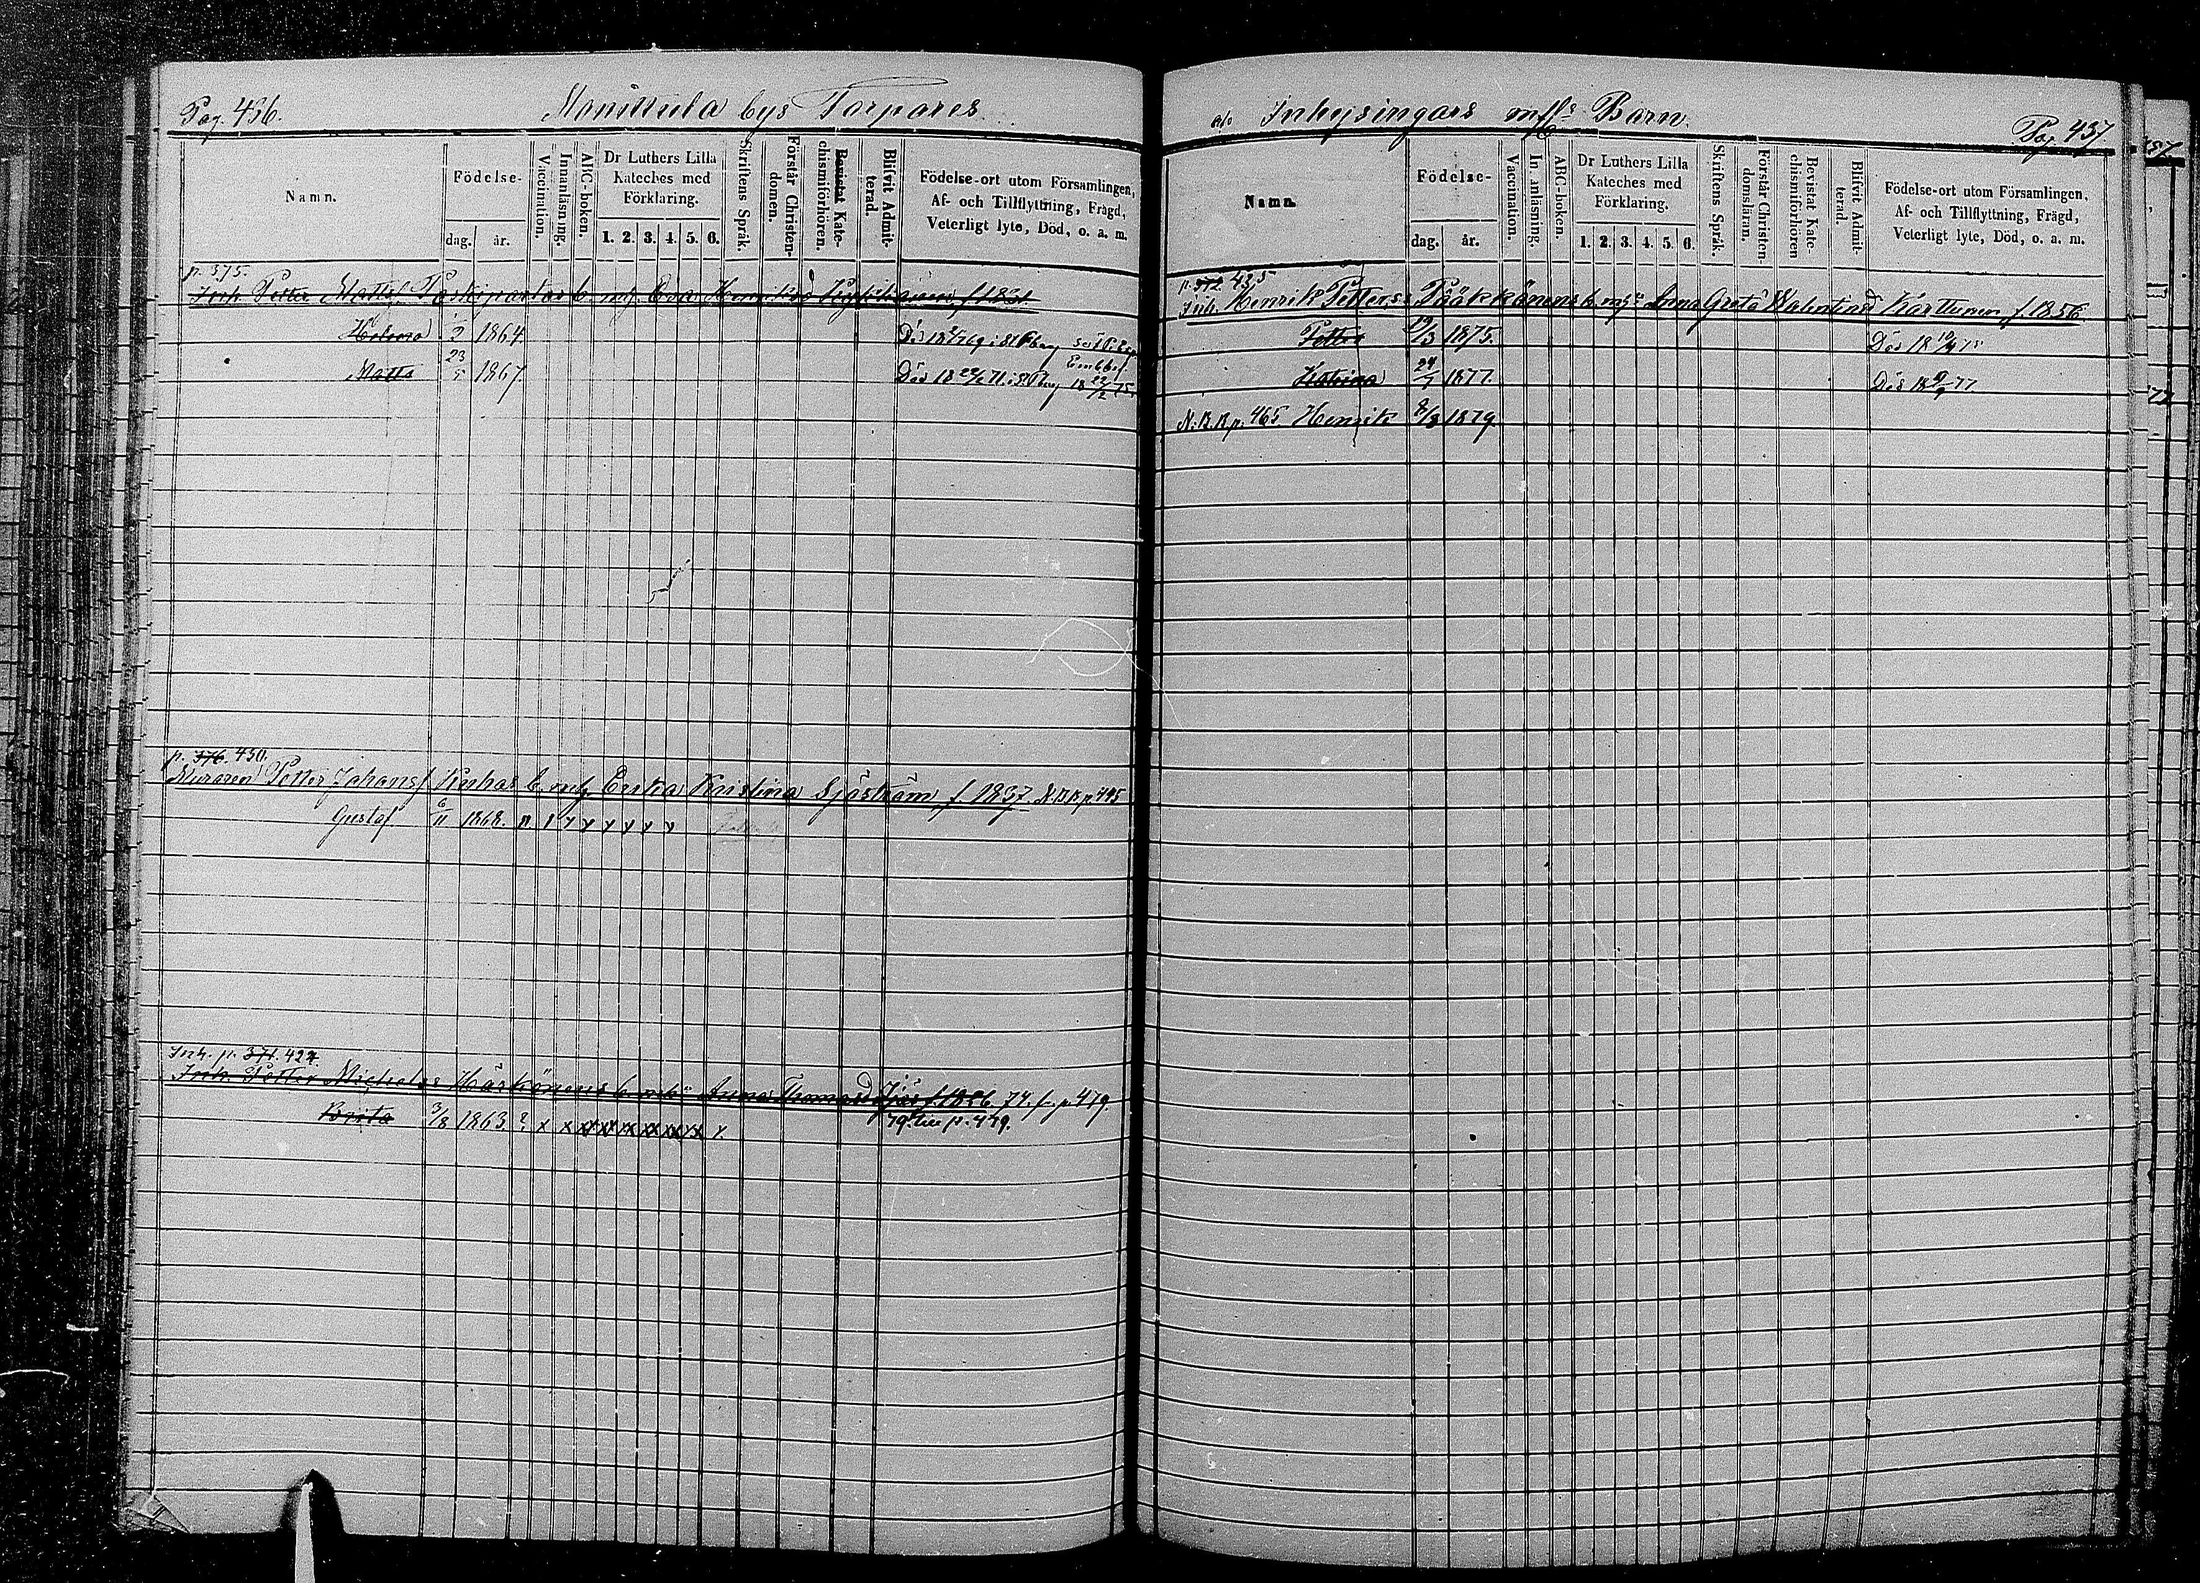 Pag. 436.
bys Torpares
Namn.
Födelse-
dag. år.
Vaccination.
Innanläsning.
ABC-boken.
Dr Luthers Lilla
Kateches med
Förklaring.
1. 2. 3. 4. 5. 6.
Skriftens Språk.
Förstår Christen-
domen.
Bevistat Kate-
chismiförhören.
Blifvit Admit-
terad.
Födelse-ort utom Församlingen,
Af- och Tillflyttning, Frägd,
Veterligt lyte, Död, o. a. m.
p. 375.
Inh. Petter Matts f. 1831
Helena 1/2 1864. Död
Matts 23/5 1867. Död
p. 376. 430.
Muraren Petter Johanss Kuhas Erika Kristina Sjöström f. 1837. N.B.B. p 445
Gustaf 6/11 1868.
Inh. p. 371. 424.
Inh. Petter Michelss Härkönens Anna Thomasd f. 1826. 74. fr. p 479.
Brita 3/8 1863. ? x x x x x x x x x 79 till p. 479.
Inhysingars Barn.
Pag. 437
Namn.
Födelse-
dag. år.
Vaccination.
Innanläsning.
ABC-boken.
Dr Luthers Lilla
Kateches med
Förklaring.
1. 2. 3. 4. 5. 6.
Skriftens Språk.
Förstår Christen-
domsläran.
Bevistat Kate-
chismiförhören
Blifvit Admit-
terad.
Födelse-ort utom Församlingen,
Af- och Tillflyttning, Frägd,
Veterligt lyte, Död, o. a. m.
p. 372 425
Inh. Henrik Petterss Pääkkönens Anna Greta Valentinsd Karttunen f. 1856
Petter 19/3 1875. Död
Katrina 24/7 1877. Död 18 9/9 77
N.B.B. p. 465 Henrik 8/3 1879.